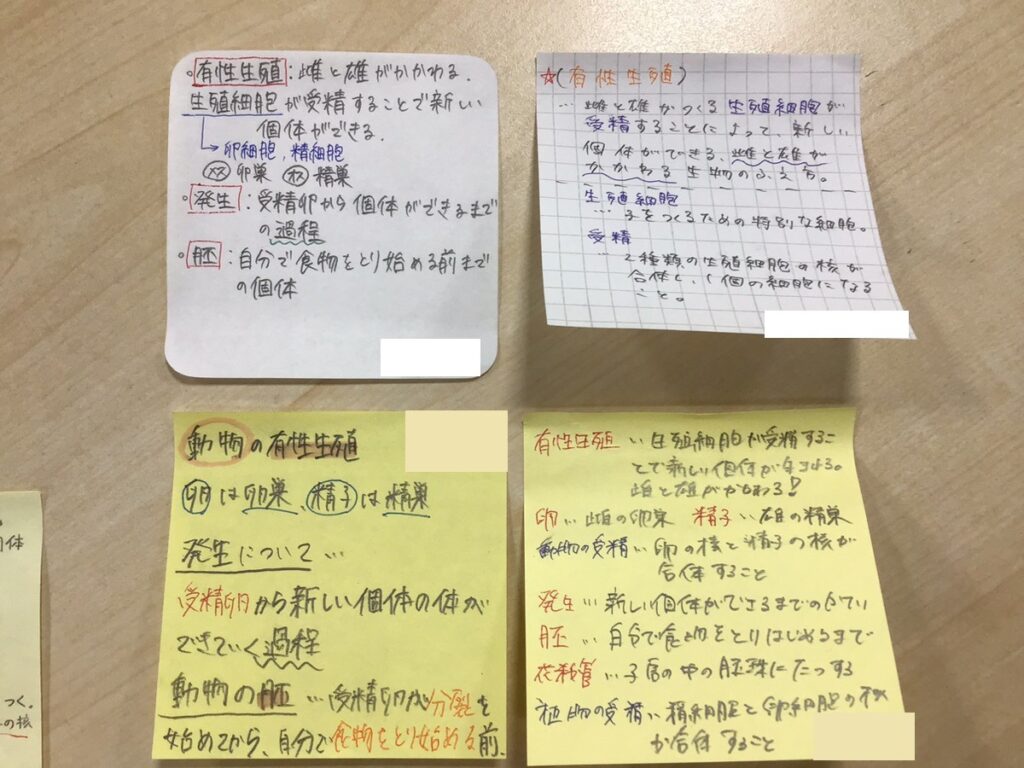 。有性生殖：雌と雄がかかわる.
生殖細胞が受精することで新しい
個体ができる.
→卵細胞, 精細胞
メス 卵巣 オス 精巣
。発生：受精卵から個体ができるまで
の過程
。胚：自分で食物をとり始める前まで
の個体
☆(有性生殖)
… 雌と雄がつくる生殖細胞が
受精することによって、新しい
個体ができる、雌と雄が
かかわる生物のふえ方。
生殖細胞
…子をつくるための特別な細胞。
受精
…2種類の生殖細胞の核が
合体し、1個の細胞になる
こと。
動物の有性生殖
卵は卵巣、精子は精巣
発生について…
受精卵から新しい個体の体が
できていく過程
動物の胚…受精卵が分裂を
始めてから、自分で食物をとり始める前、
有性生殖…生殖細胞が受精するこ
とで新しい個体が
雌と雄がかかわる!
卵…雌の卵巣 精子…雄の精巣
動物の受精…卵の核と精子の核が
合体すること
発生…新しい個体ができるまでのかてい
胚…自分で食物をとりはじめるまで
花粉管…子房の中の胚珠にたっする
植物の受精…精細胞と卵細胞の核
が合体すること
体
つく。
の核